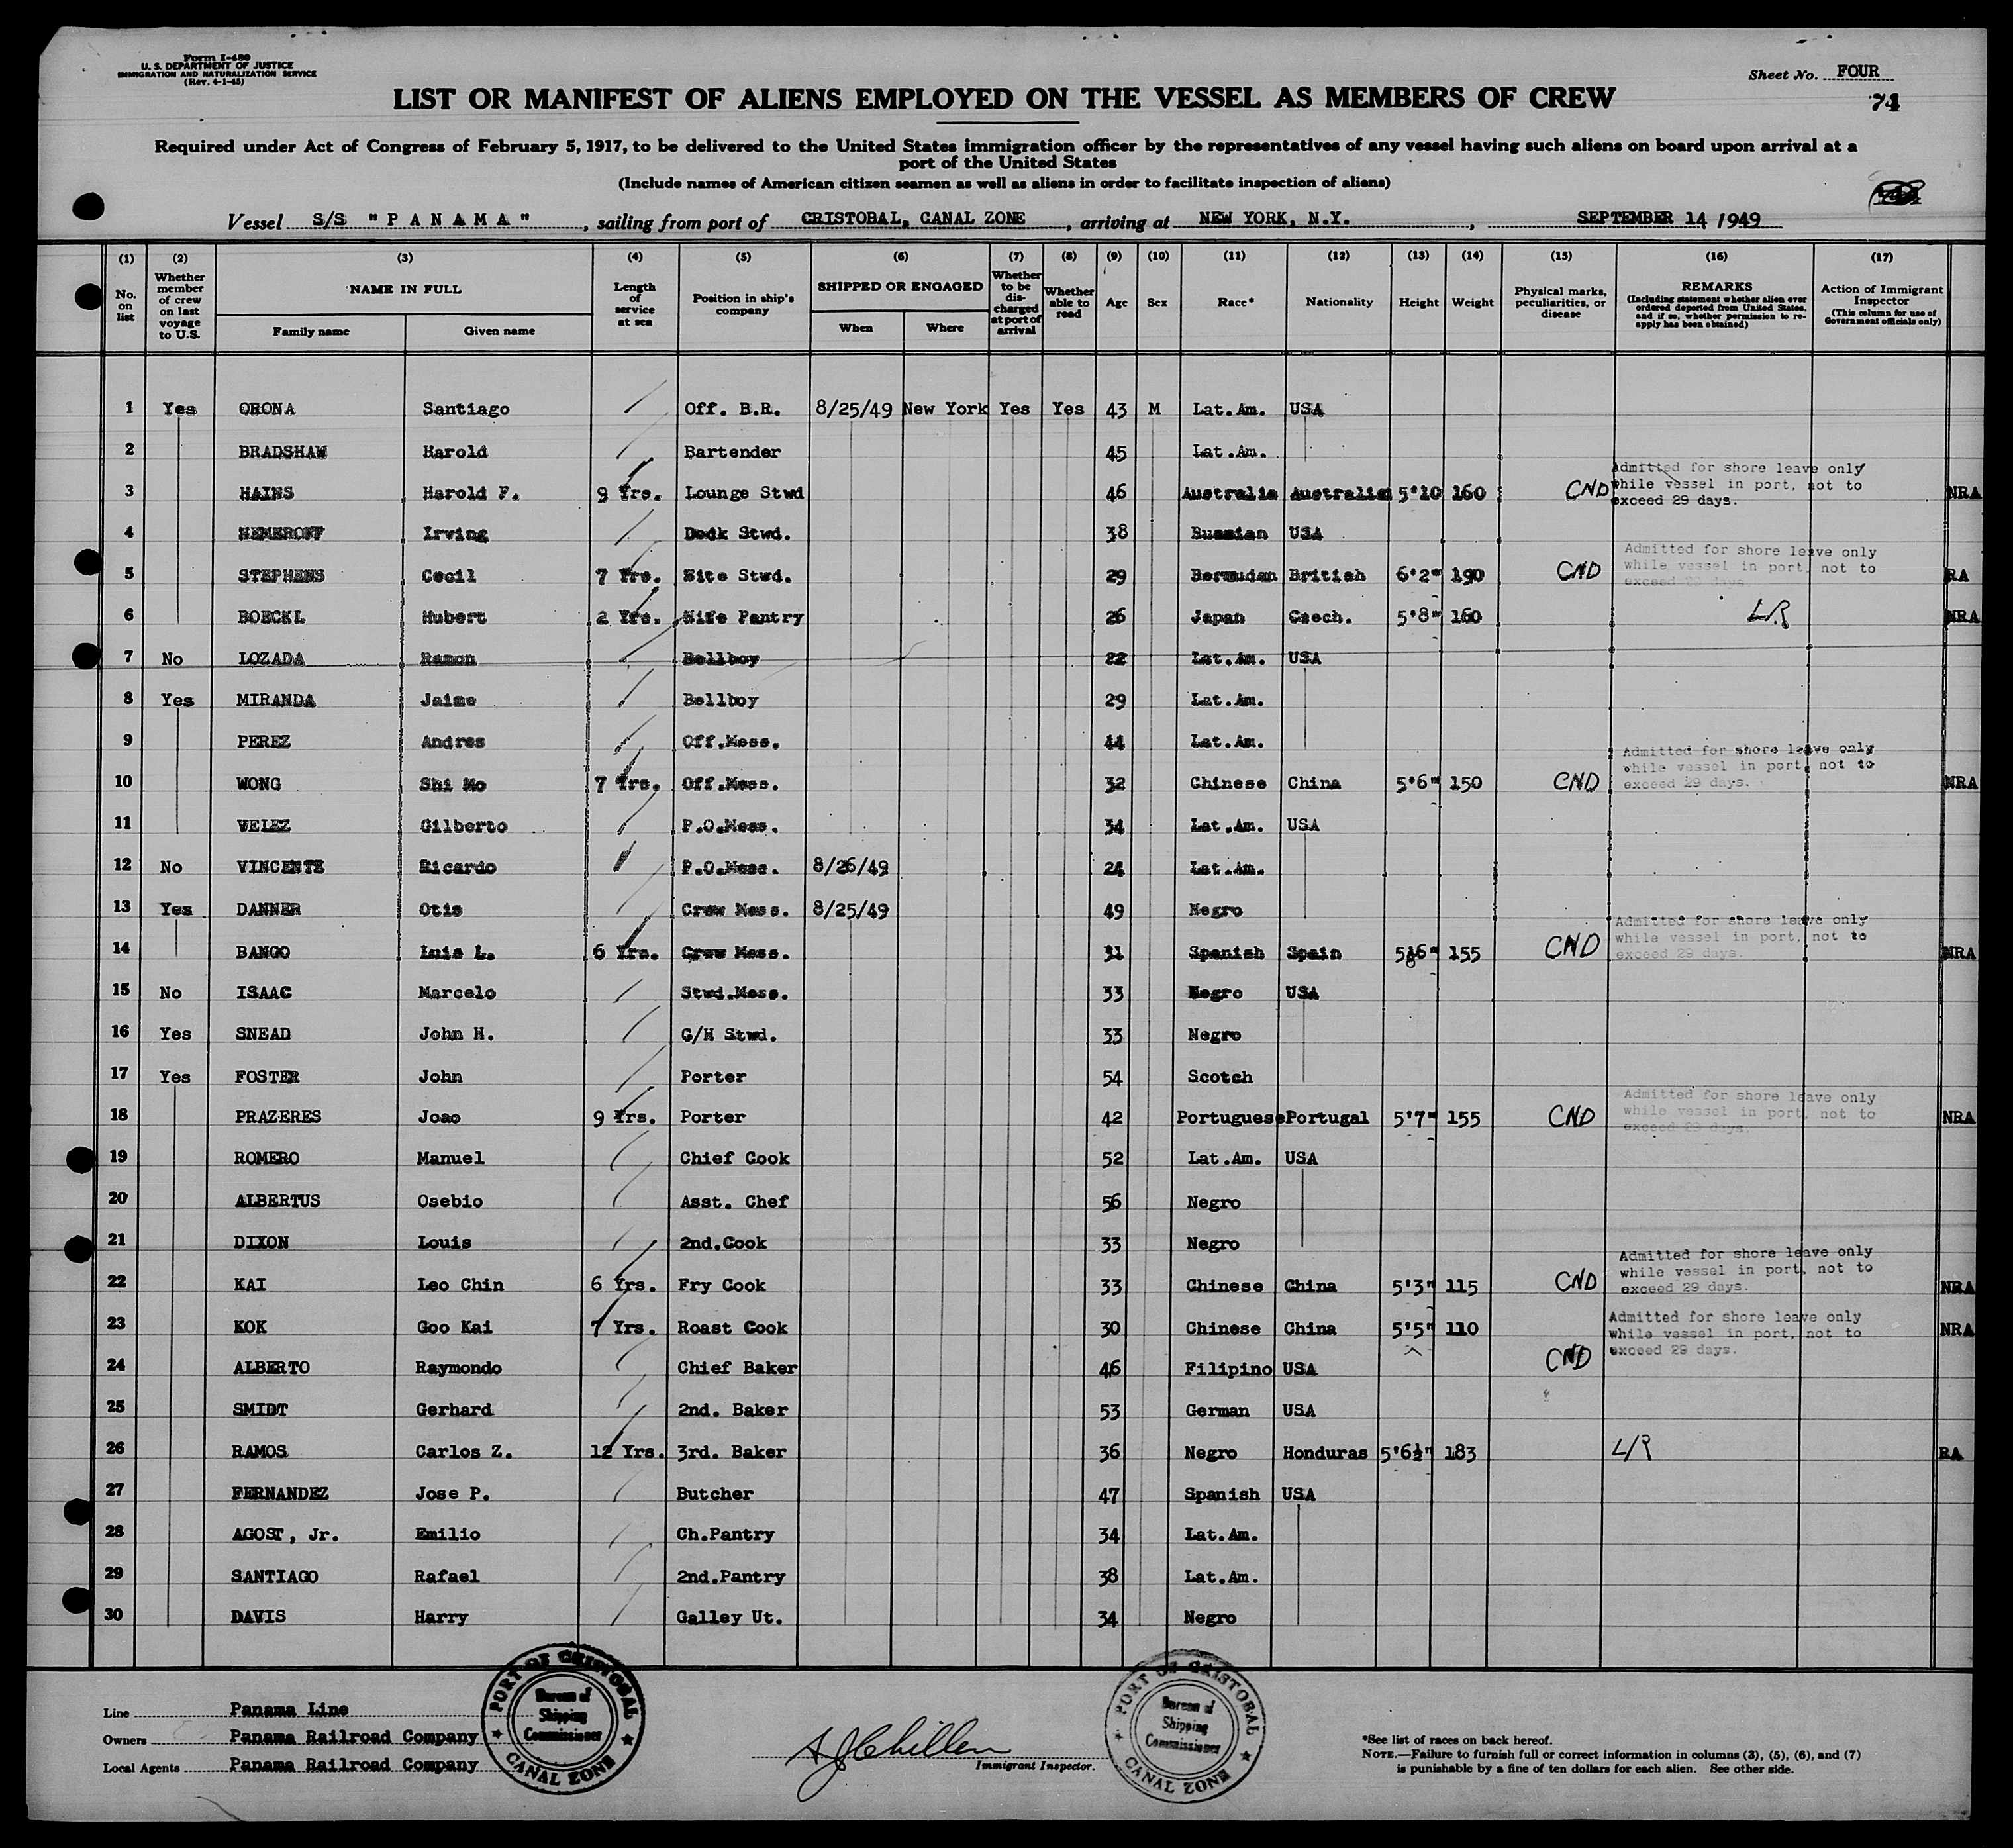 Form I-480
U. S. DEPARTMENT OF JUSTICE
IMMIGRATION AND NATURALIZATION SERVICE
(Rev. 4-1-45)
Sheet No. FOUR
74
LIST OR MANIFEST OF ALIENS EMPLOYED ON THE VESSEL AS MEMBERS OF CREW
Required under Act of Congress of February 5, 1917, to be delivered to the United States immigration officer by the representatives of any vessel having such aliens on board upon arrival at a
port of the United States
(Include names of American citizen seamen as well as aliens in order to facilitate inspection of aliens)
Vessel S/S "PANAMA", sailing from port of CRISTOBAL, CANAL ZONE, arriving at NEW YORK, N.Y., SEPTEMBER 14 1949
(1) No. on list
(2) Whether member of crew on last voyage to U.S.
(3) NAME IN FULL Family name Given name
(4) Length of service at sea
(5) Position in ship's company
(6) SHIPPED OR ENGAGED When Where
(7) Whether to be discharged at port of arrival
(8) Whether able to read
(9) Age
(10) Sex
(11) Race*
(12) Nationality
(13) Height
(14) Weight
(15) Physical marks, peculiarities, or disease
(16) REMARKS (Including statement whether alien ever ordered deported from United States, and if so, whether permission to re-apply has been obtained)
(17) Action of Immigrant Inspector (This column for use of Government officials only)
1 Yes ORONA Santiago Off. B.R. 8/25/49 New York Yes Yes 43 M Lat.Am. USA
2 BRADSHAW Harold Bartender 45 Lat.Am.
3 HAINS Harold F. 9 Yrs. Lounge Stwd 46 Australia Australia 5'10 160 CND Admitted for shore leave only while vessel in port, not to exceed 29 days. NRA
4 NEMEROFF Irving Deck Stwd. 38 Russian USA
5 STEPHENS Cecil 7 Yrs. Nite Stwd. 29 Bermudan British 6'2" 190 CND Admitted for shore leave only while vessel in port, not to exceed 29 days. RA
6 BOECKL Hubert 2 Yrs. Nite Pantry 26 Japan Czech. 5'8" 160 L.R. NRA
7 No LOZADA Ramon Bellboy 22 Lat.Am. USA
8 Yes MIRANDA Jaime Bellboy 29 Lat.Am.
9 PEREZ Andres Off.Mess. 44 Lat.Am.
10 WONG Shi Mo 7 Yrs. Off.Mess. 32 Chinese China 5'6" 150 CND Admitted for shore leave only while vessel in port, not to exceed 29 days. NRA
11 VELEZ Gilberto P.O.Mess. 34 Lat.Am. USA
12 No VINCENTE Ricardo P.O.Mess. 8/26/49 24 Lat.Am.
13 Yes DANNER Otis Crew Mess. 8/25/49 49 Negro
14 BANGO Luis L. 6 Yrs. Crew Mess. 31 Spanish Spain 5'6" 155 CND Admitted for shore leave only while vessel in port, not to exceed 29 days. NRA
15 No ISAAC Marcelo Stwd.Mess. 33 Negro USA
16 Yes SNEAD John H. G/H Stwd. 33 Negro
17 Yes FOSTER John Porter 54 Scotch
18 PRAZERES Joao 9 Yrs. Porter 42 Portuguese Portugal 5'7" 155 CND Admitted for shore leave only while vessel in port, not to exceed 29 days. NRA
19 ROMERO Manuel Chief Cook 52 Lat.Am. USA
20 ALBERTUS Osebio Asst. Chef 56 Negro
21 DIXON Louis 2nd.Cook 33 Negro
22 KAI Leo Chin 6 Yrs. Fry Cook 33 Chinese China 5'3" 115 CND Admitted for shore leave only while vessel in port, not to exceed 29 days. NRA
23 KOK Goo Kai 7 Yrs. Roast Cook 30 Chinese China 5'5" 110 CND Admitted for shore leave only while vessel in port, not to exceed 29 days. NRA
24 ALBERTO Raymondo Chief Baker 46 Filipino USA
25 SMIDT Gerhard 2nd. Baker 53 German USA
26 RAMOS Carlos Z. 12 Yrs. 3rd. Baker 36 Negro Honduras 5'6½" 183 L/R RA
27 FERNANDEZ Jose P. Butcher 47 Spanish USA
28 AGOST, Jr. Emilio Ch.Pantry 34 Lat.Am.
29 SANTIAGO Rafael 2nd.Pantry 38 Lat.Am.
30 DAVIS Harry Galley Ut. 34 Negro
Line Panama Line
Owners Panama Railroad Company
Local Agents Panama Railroad Company
PORT OF CRISTOBAL
Bureau of
Shipping
Commissioner
CANAL ZONE
Immigrant Inspector.
PORT OF CRISTOBAL
Bureau of
Shipping
Commissioner
CANAL ZONE
*See list of races on back hereof.
NOTE.—Failure to furnish full or correct information in columns (3), (5), (6), and (7)
is punishable by a fine of ten dollars for each alien. See other side.